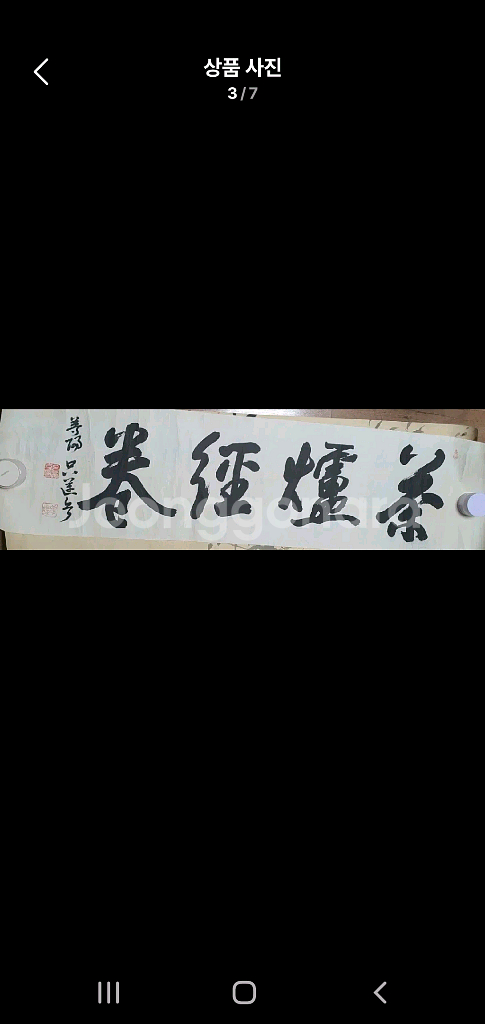 상품 사진
3 / 7
茶爐經卷
Joonggonara